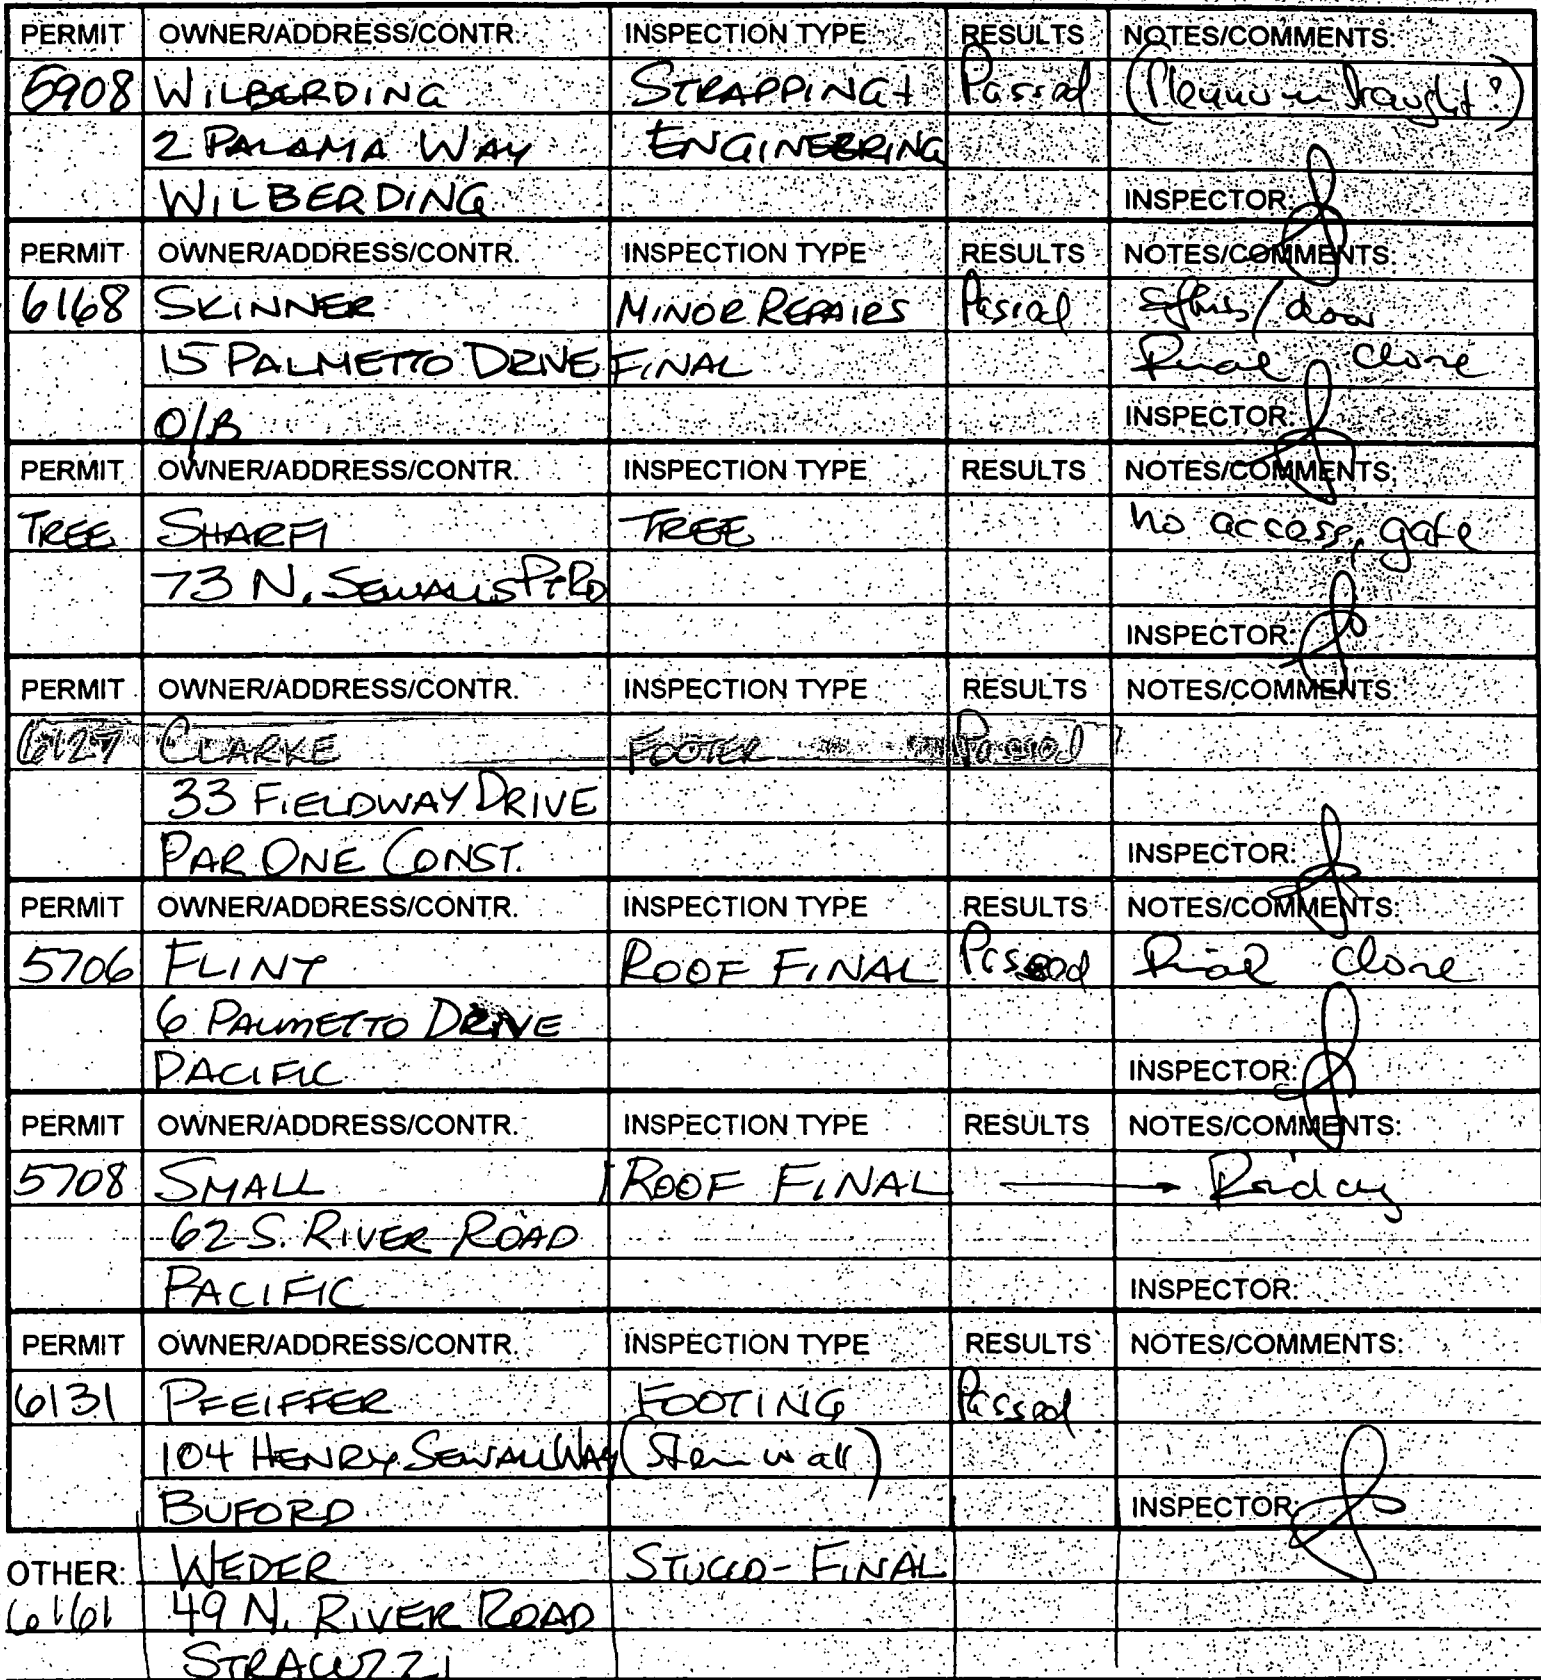 PERMIT OWNER/ADDRESS/CONTR. INSPECTION TYPE RESULTS NOTES/COMMENTS:
5908 WILBERDING STRAPPING + Passed
2 PALAMA WAY ENGINEERING
WILBERDING INSPECTOR:
PERMIT OWNER/ADDRESS/CONTR. INSPECTION TYPE RESULTS NOTES/COMMENTS:
6168 SKINNER MINOR REPAIRS Passed door
15 PALMETTO DRIVE FINAL Final Close
O/B INSPECTOR:
PERMIT OWNER/ADDRESS/CONTR. INSPECTION TYPE RESULTS NOTES/COMMENTS:
TREE SHARFI TREE no access, gate
73 N. SEWALLS PT RD
INSPECTOR:
PERMIT OWNER/ADDRESS/CONTR. INSPECTION TYPE RESULTS NOTES/COMMENTS:
6127 CLARKE FOOTER Passed
33 FIELDWAY DRIVE
PAR ONE CONST. INSPECTOR:
PERMIT OWNER/ADDRESS/CONTR. INSPECTION TYPE RESULTS NOTES/COMMENTS:
5706 FLINT ROOF FINAL Passed Final Close
6 PALMETTO DRIVE
PACIFIC INSPECTOR:
PERMIT OWNER/ADDRESS/CONTR. INSPECTION TYPE RESULTS NOTES/COMMENTS:
5708 SMALL ROOF FINAL → Friday
62 S. RIVER ROAD
PACIFIC INSPECTOR:
PERMIT OWNER/ADDRESS/CONTR. INSPECTION TYPE RESULTS NOTES/COMMENTS:
6131 PFEIFFER FOOTING Passed
104 HENRY SEWALL WAY (Stem wall)
BUFORD INSPECTOR:
OTHER: WEDER STUCCO - FINAL
6161 49 N. RIVER ROAD
STRACUZZI